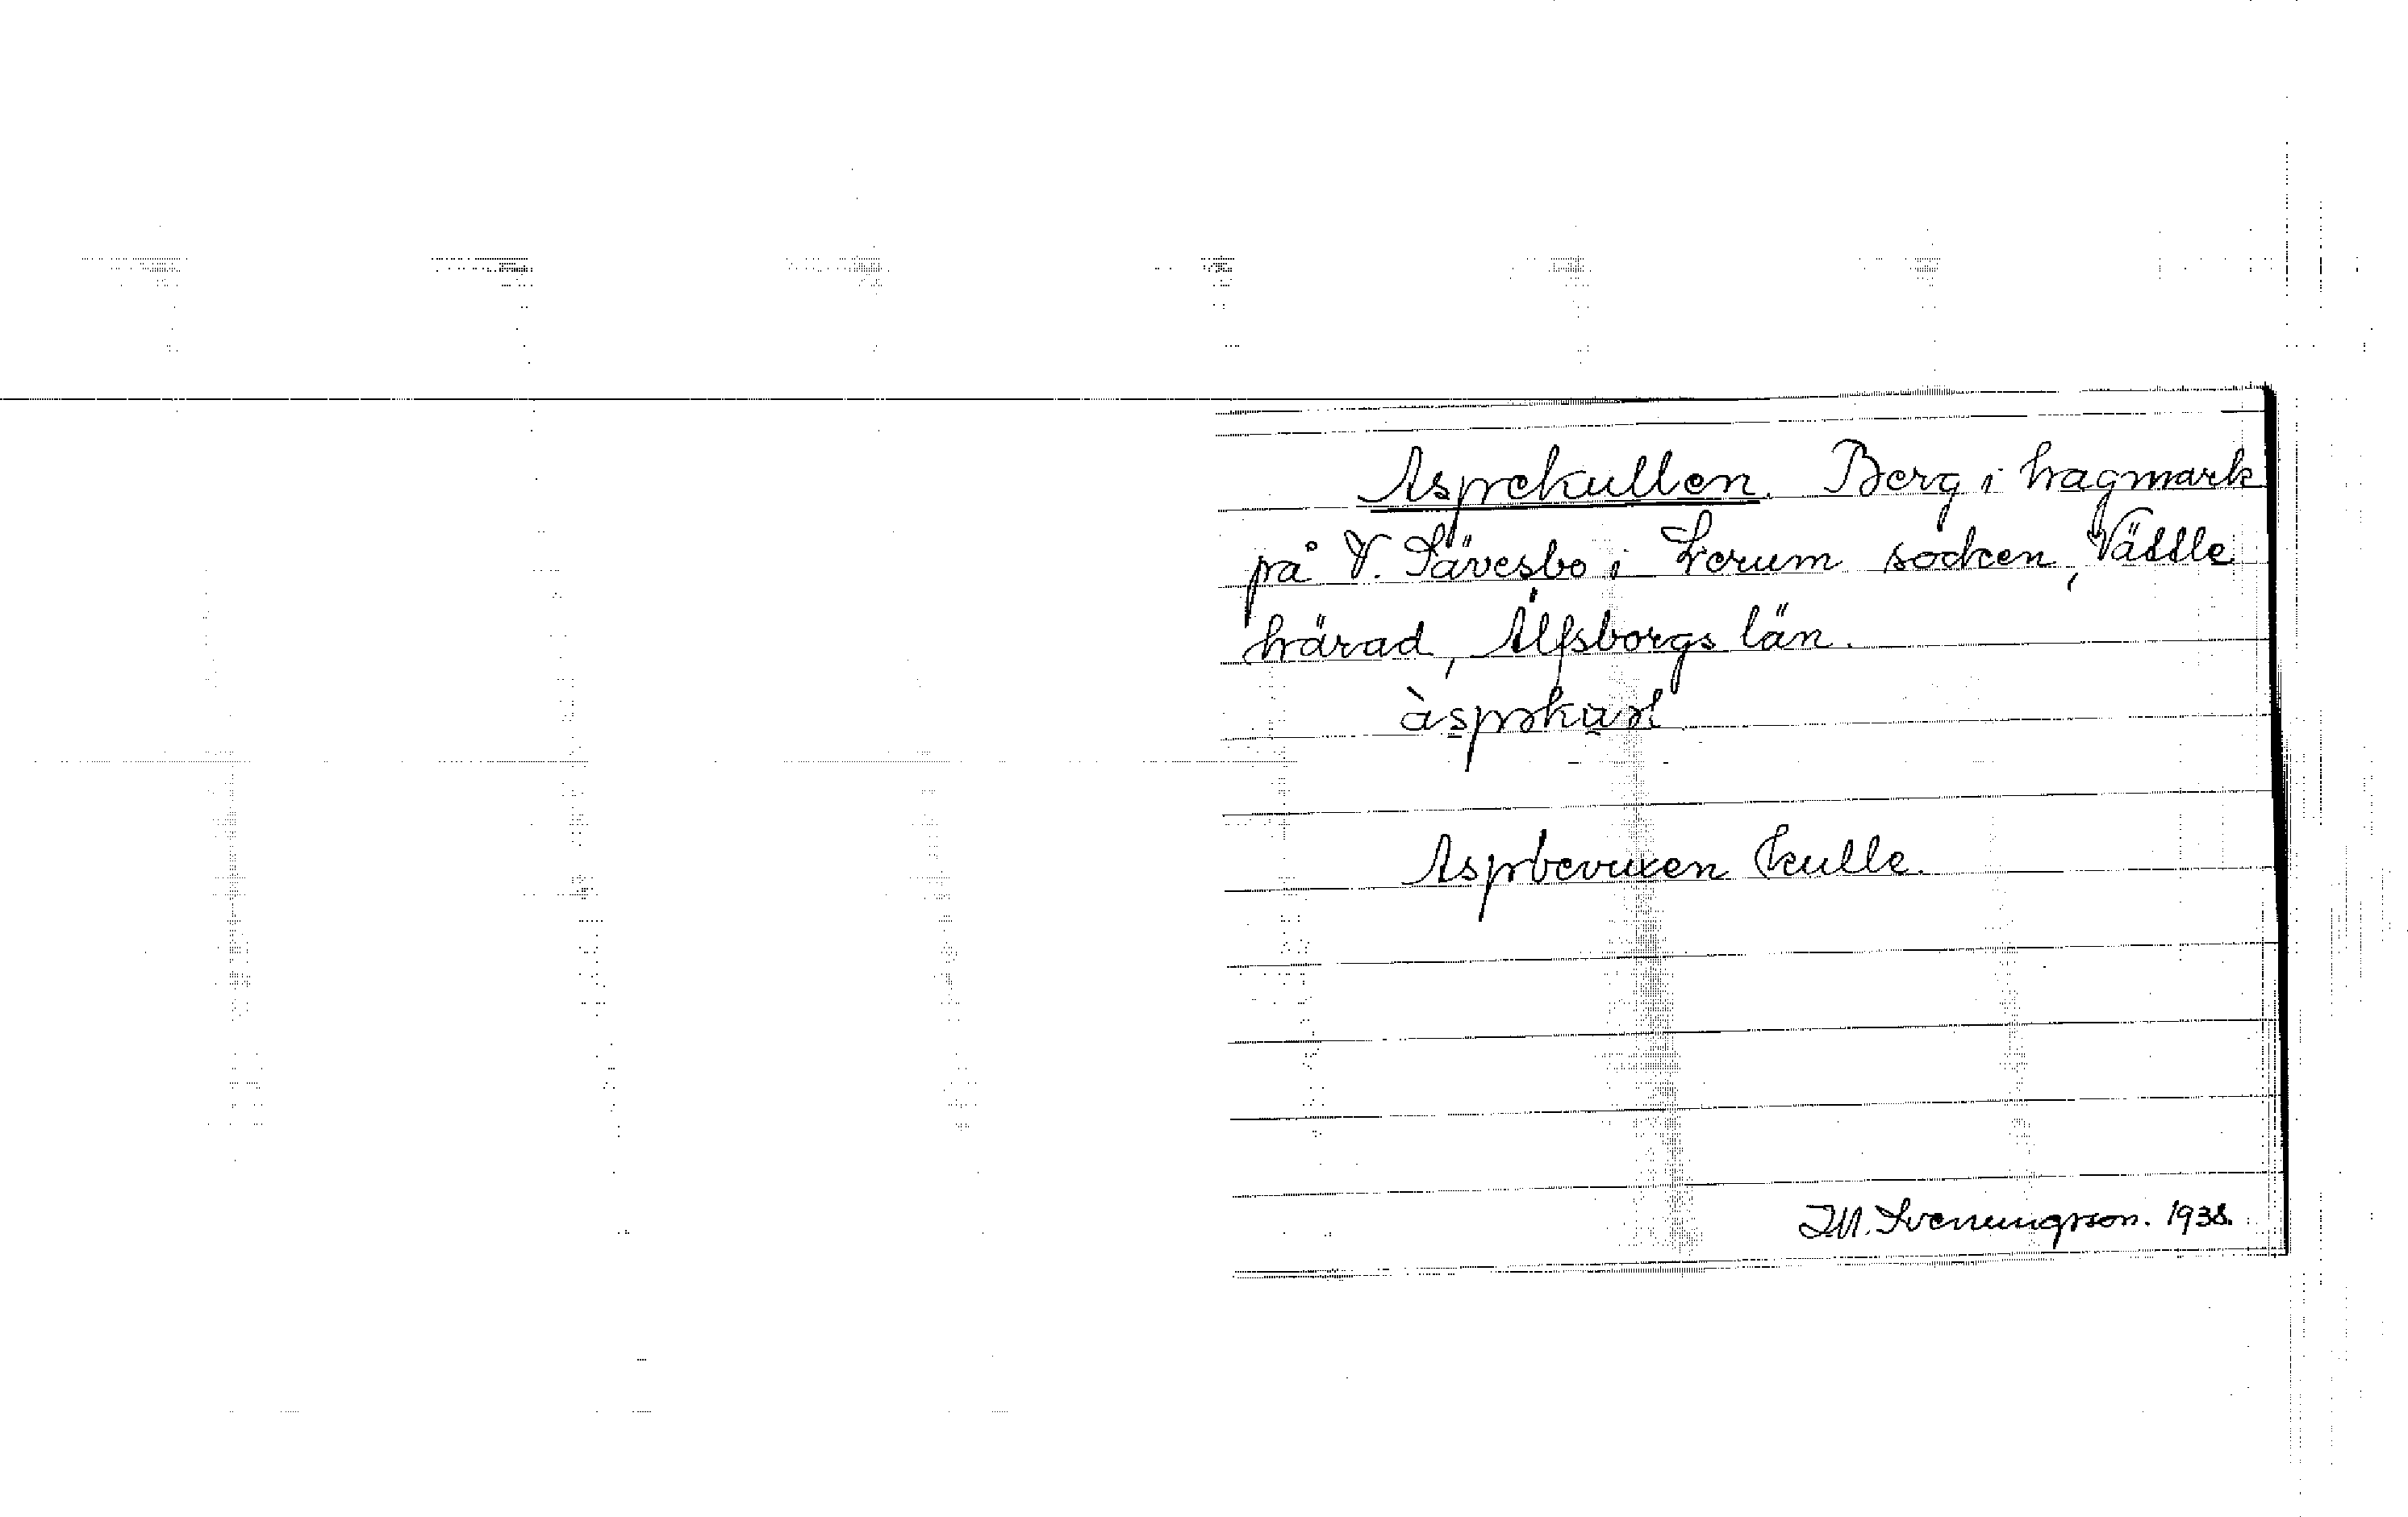 Aspekullen. Berg i hagmark
på V. Sävesbo i Lerum socken, Vättle
härad, Älfsborgs län.
Aspbevuxen kulle.
I M. Svenungsson. 1938.